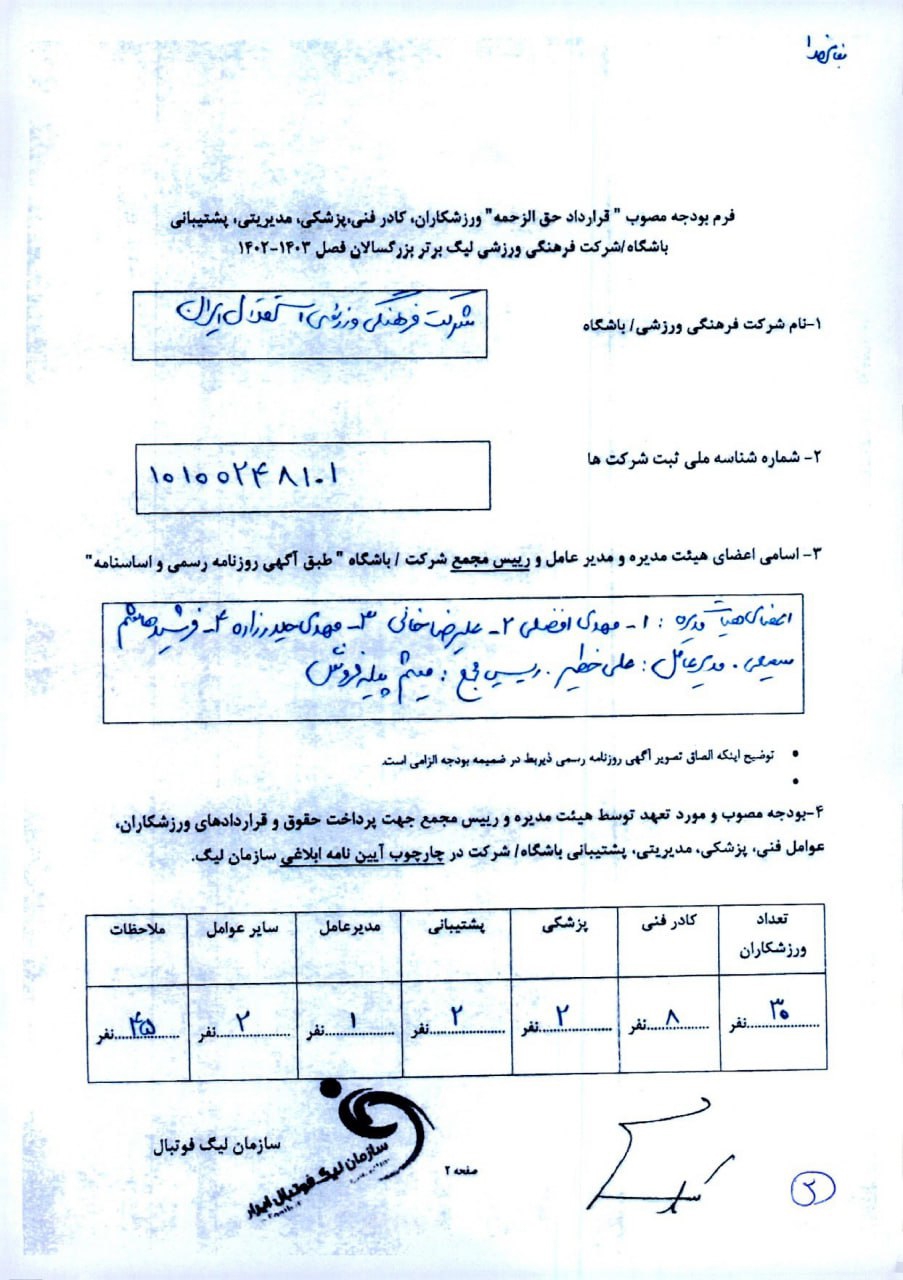 فرم بودجه مصوب " قرارداد حق الزحمه" ورزشکاران، کادر فنی،پزشکی، مدیریتی، پشتیبانی
باشگاه/شرکت فرهنگی ورزشی لیگ برتر بزرگسالان فصل ۱۴۰۳-۱۴۰۲
۱-نام شرکت فرهنگی ورزشی/ باشگاه
شرکت فرهنگی ورزشی استقلال ایران
۲- شماره شناسه ملی ثبت شرکت ها
۱۰۱۰۰۲۴۸۱۰۱
۳- اسامی اعضای هیئت مدیره و مدیر عامل و رییس مجمع شرکت / باشگاه " طبق آگهی روزنامه رسمی و اساسنامه"
اعضای هیات مدیره : ۱- مهدی افضلی ۲- علیرضا خانی ۳- مهدی حیدرزاده ۴- فرشید
سمیعی . مدیرعامل : علی خطیر . رییس مجمع : میثم پیله فروش
• توضیح اینکه الصاق تصویر آگهی روزنامه رسمی ذیربط در ضمیمه بودجه الزامی است.
•
۴-بودجه مصوب و مورد تعهد توسط هیئت مدیره و رییس مجمع جهت پرداخت حقوق و قراردادهای ورزشکاران،
عوامل فنی، پزشکی، مدیریتی، پشتیبانی باشگاه/ شرکت در چارچوب آیین نامه ابلاغی سازمان لیگ.
تعداد ورزشکاران کادر فنی پزشکی پشتیبانی مدیرعامل سایر عوامل ملاحظات
۳۰ نفر ۸ نفر ۲ نفر ۲ نفر ۱ نفر ۲ نفر ۴۵ نفر
سازمان لیگ فوتبال
سازمان لیگ فوتبال ایران
صفحه ۲
۲